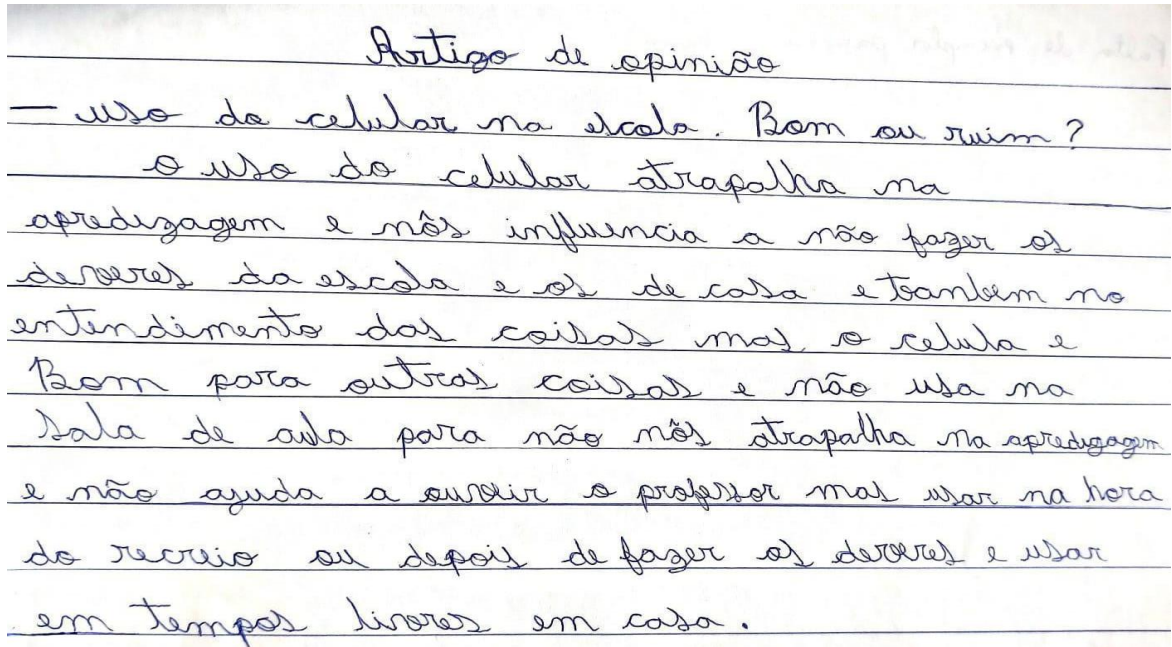 Artigo de opinião
— uso do celular na escola. Bom ou ruim?
o uso do celular atrapalha na
apredizagem e nôs influencia a não fazer os
deveres da escola e os de casa e tambem no
entendimento das coisas mas o celula e
Bom para outras coisas e não usa na
sala de aula para não nôs atrapalha na apredizagem
e não ajuda a ouvir o professor mas usar na hora
do recreio ou depois de fazer os deveres e usar
em tempos livres em casa.